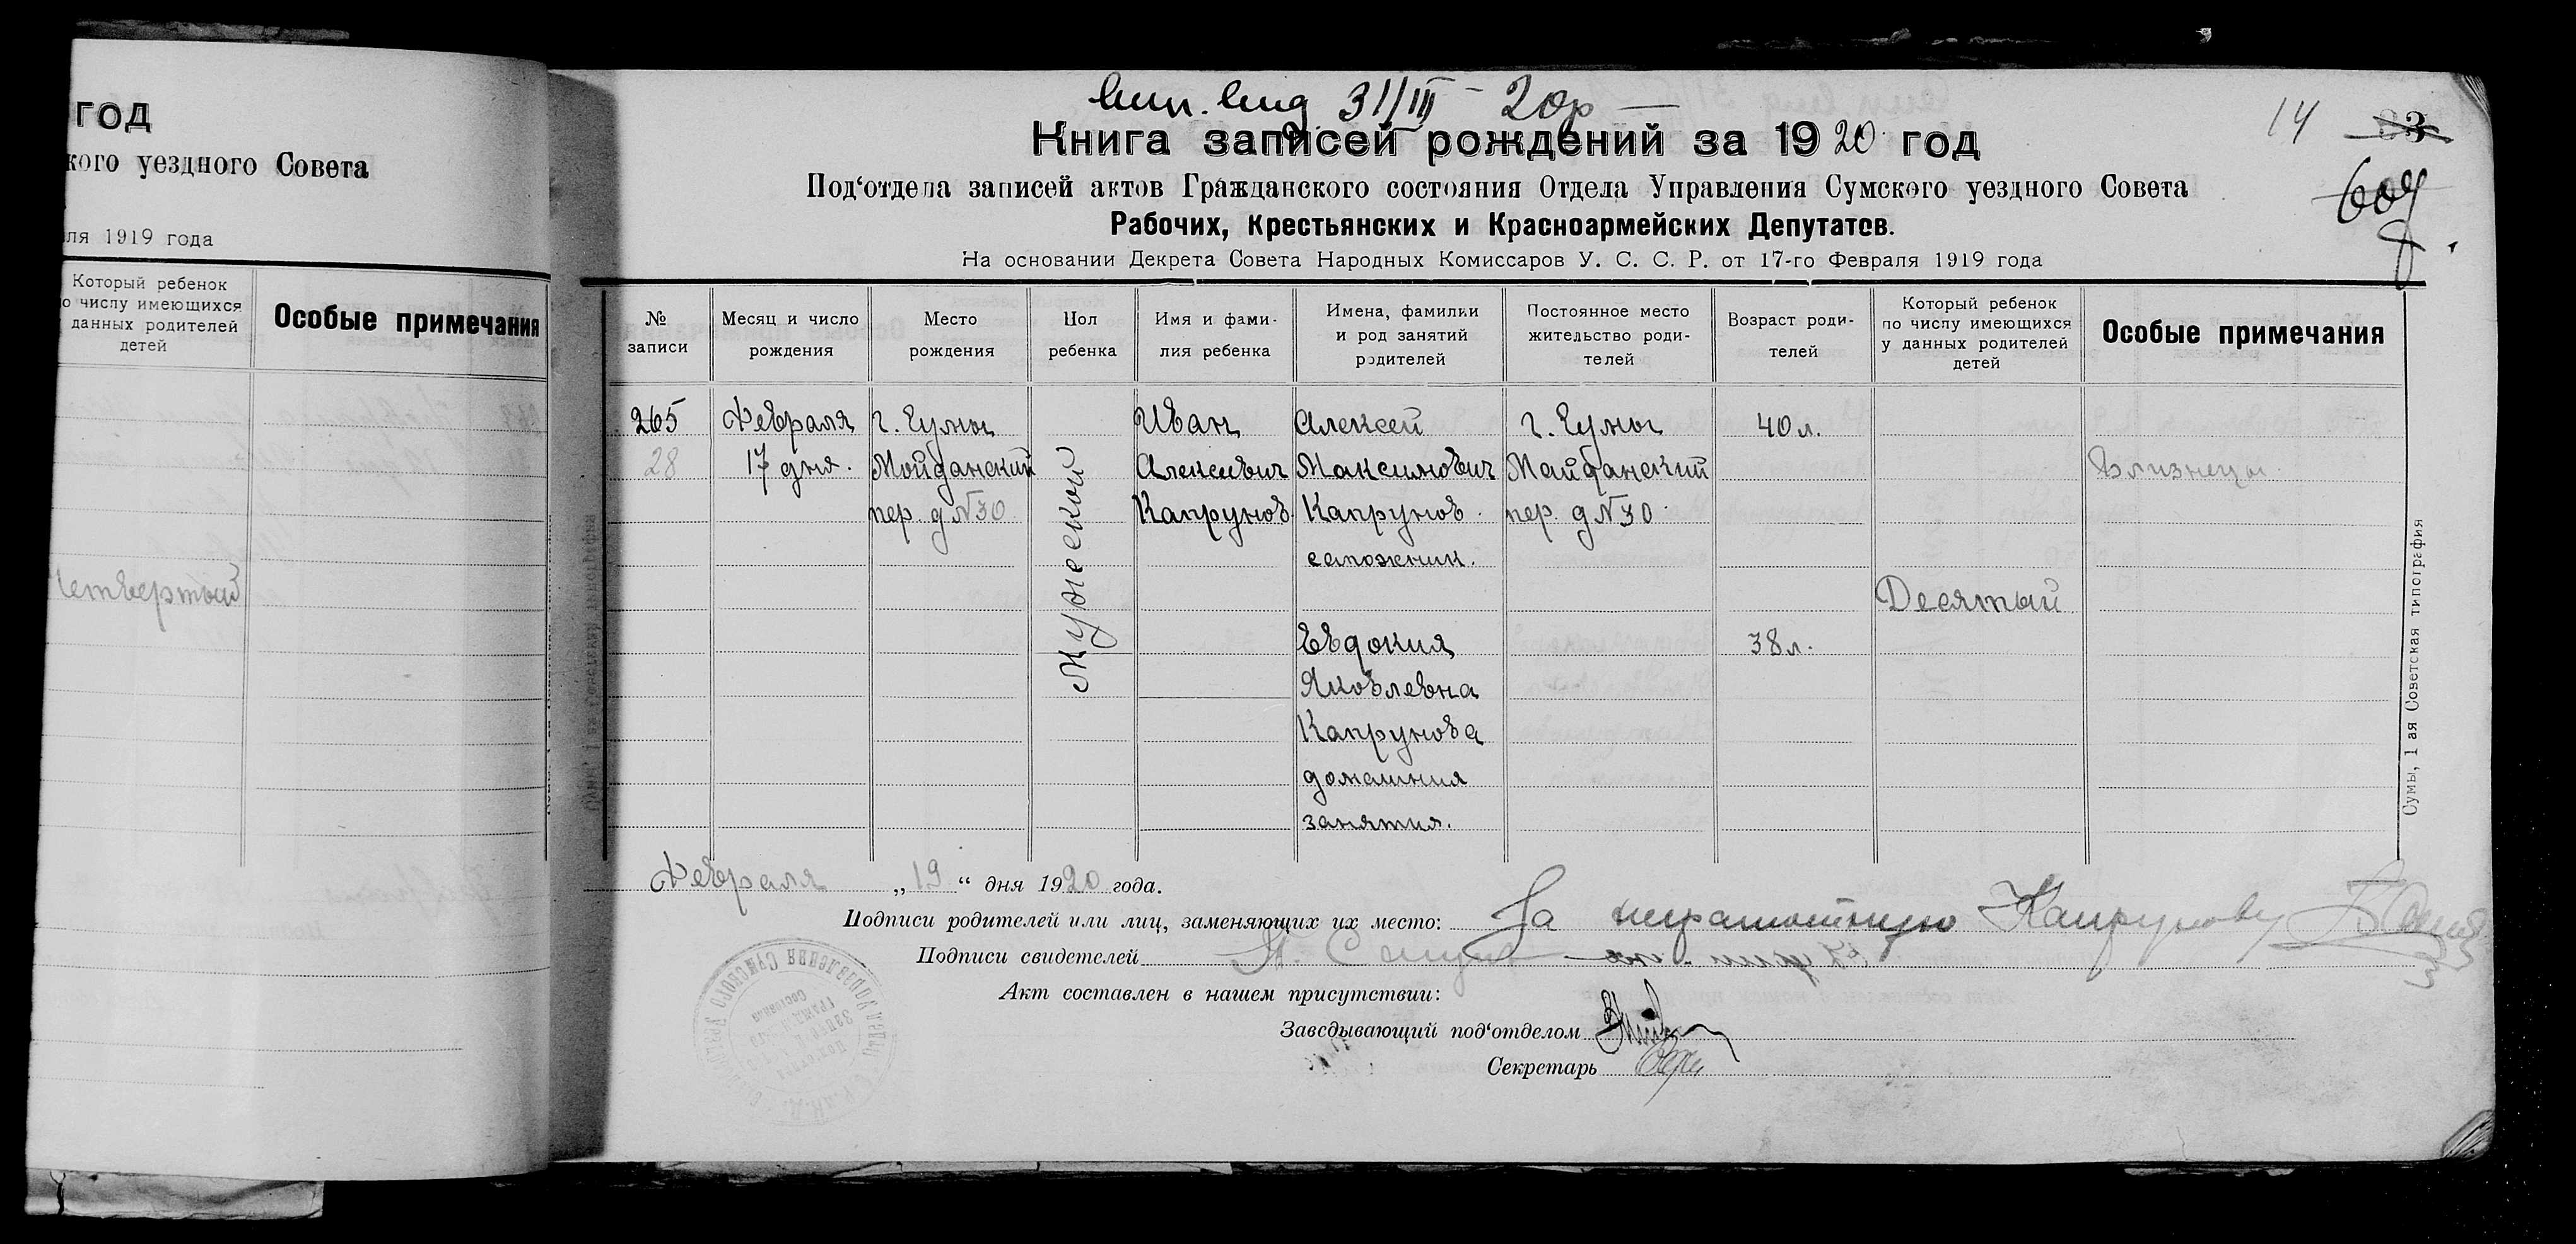 год
кого уездного Совета
ля 1919 года
Который ребенок
о числу имеющихся
данных родителей
детей
Особые примечания
Четвертый
31/III - 20р
Книга записей рождений за 1920 год
14
Под‘отдела записей актов Гражданского состояния Отдела Управления Сумского уездного Совета
Рабочих, Крестьянских и Красноармейских Депутатов.
На основании Декрета Совета Народных Комиссаров У. С. С. Р. от 17-го Февраля 1919 года
№ записи
Месяц и число рождения
Место рождения
Пол ребенка
Имя и фамилия ребенка
Имена, фамилки и род занятий родителей
Постоянное место жительство родителей
Возраст родителей
Который ребенок по числу имеющихся у данных родителей детей
Особые примечания
265 Февраля г. Сумы Иван Алексей г. Сумы 40 л.
28 17 дня. Мойданский Алексеевич Максимович Майданский Близнецы
пер. д №30 Капрунов Капрунов пер. д №30
Мужеской
сапожник.
Десятый
Евдокия 38 л.
Яковлевна
Капрунова
домашния
занятия.
Сумы, 1 ая Советская типография
Февраля „19“ дня 1920 года.
Подписи родителей или лиц, заменяющих их место: За неграмотную Капрунову
Подписи свидетелей
Акт составлен в нашем присутствии:
Заведывающий под‘отделом
Секретарь